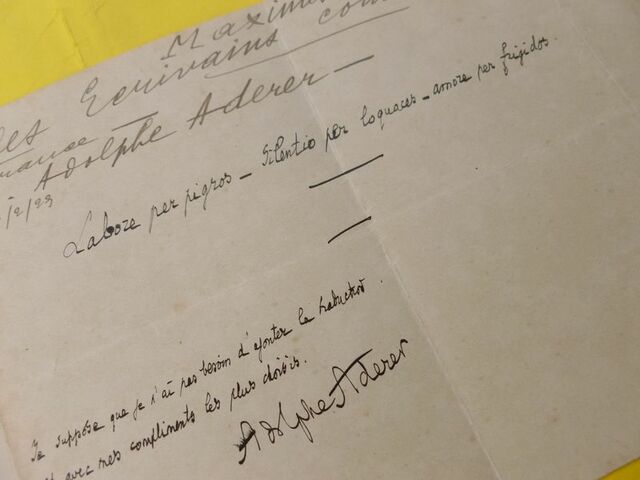 Maximes
des Ecrivains con
France
Adolphe Aderer
/2/23
Labore per pigros - Silentio per loquaces - amore per frigidos.
Je suppose que je n'ai pas besoin d'ajouter la traduction.
avec mes compliments les plus choisis.
Adolphe Aderer